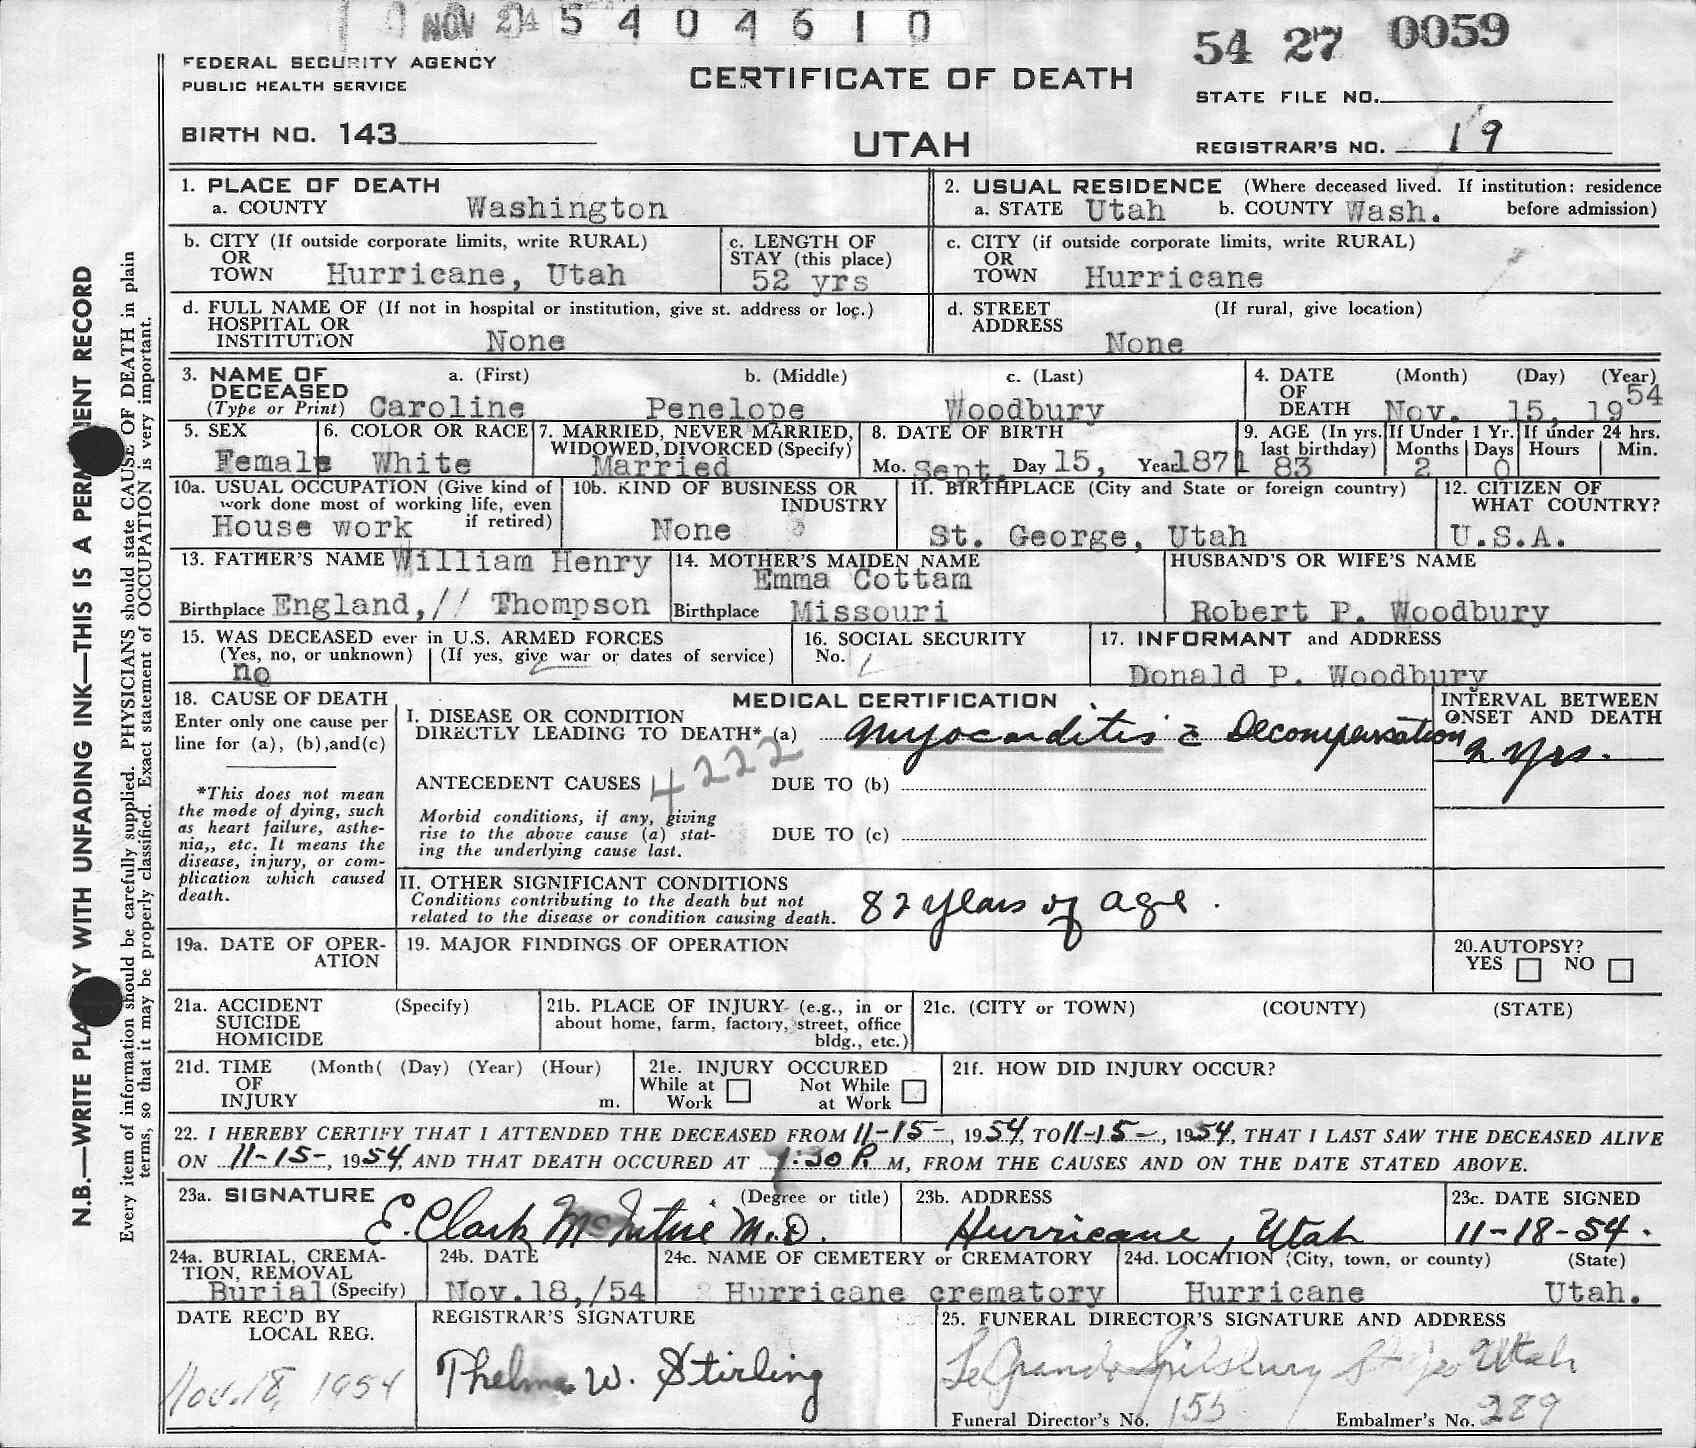 NOV 24 5 4 0 4 6 1 0
54 27 0059
FEDERAL SECURITY AGENCY
PUBLIC HEALTH SERVICE
CERTIFICATE OF DEATH
STATE FILE NO.
BIRTH NO. 143
UTAH
REGISTRAR'S NO. 19
1. PLACE OF DEATH
a. COUNTY Washington
2. USUAL RESIDENCE (Where deceased lived. If institution: residence
a. STATE Utah b. COUNTY Wash. before admission)
b. CITY (If outside corporate limits, write RURAL)
OR
TOWN Hurricane, Utah
c. LENGTH OF
STAY (this place)
52 yrs
c. CITY (if outside corporate limits, write RURAL)
OR
TOWN Hurricane
d. FULL NAME OF (If not in hospital or institution, give st. address or loc.)
HOSPITAL OR
INSTITUTION None
d. STREET (If rural, give location)
ADDRESS
None
3. NAME OF a. (First) b. (Middle) c. (Last)
DECEASED
(Type or Print) Caroline Penelope Woodbury
4. DATE (Month) (Day) (Year)
OF
DEATH Nov. 15, 1954
5. SEX
Female
6. COLOR OR RACE
White
7. MARRIED, NEVER MARRIED,
WIDOWED, DIVORCED (Specify)
Married
8. DATE OF BIRTH
Mo. Sept. Day 15, Year 1871
9. AGE (In yrs.
last birthday)
83
If Under 1 Yr.
Months Days
2 0
If under 24 hrs.
Hours Min.
10a. USUAL OCCUPATION (Give kind of
work done most of working life, even
if retired)
House work
10b. KIND OF BUSINESS OR
INDUSTRY
None
11. BIRTHPLACE (City and State or foreign country)
St. George, Utah
12. CITIZEN OF
WHAT COUNTRY?
U.S.A.
13. FATHER'S NAME William Henry
Birthplace England, // Thompson
14. MOTHER'S MAIDEN NAME
Emma Cottam
Birthplace Missouri
HUSBAND'S OR WIFE'S NAME
Robert P. Woodbury
15. WAS DECEASED ever in U.S. ARMED FORCES
(Yes, no, or unknown) (If yes, give war or dates of service)
no
16. SOCIAL SECURITY
No.
17. INFORMANT and ADDRESS
Donald P. Woodbury
18. CAUSE OF DEATH
Enter only one cause per
line for (a), (b), and (c)
*This does not mean
the mode of dying, such
as heart failure, asthe-
nia,, etc. It means the
disease, injury, or com-
plication which caused
death.
MEDICAL CERTIFICATION
INTERVAL BETWEEN
ONSET AND DEATH
I. DISEASE OR CONDITION
DIRECTLY LEADING TO DEATH* (a) Myocarditis c̄ Decompensation
2 yrs.
ANTECEDENT CAUSES 4222 DUE TO (b)
Morbid conditions, if any, giving
rise to the above cause (a) stat-
ing the underlying cause last.
DUE TO (c)
II. OTHER SIGNIFICANT CONDITIONS
Conditions contributing to the death but not
related to the disease or condition causing death.
82 years of age.
19a. DATE OF OPER-
ATION
19. MAJOR FINDINGS OF OPERATION
20. AUTOPSY?
YES NO
21a. ACCIDENT (Specify)
SUICIDE
HOMICIDE
21b. PLACE OF INJURY (e.g., in or
about home, farm, factory, street, office
bldg., etc.)
21c. (CITY or TOWN) (COUNTY) (STATE)
21d. TIME (Month( (Day) (Year) (Hour)
OF
INJURY m.
21e. INJURY OCCURED
While at Not While
Work at Work
21f. HOW DID INJURY OCCUR?
22. I HEREBY CERTIFY THAT I ATTENDED THE DECEASED FROM 11-15-, 1954, TO 11-15-, 1954, THAT I LAST SAW THE DECEASED ALIVE
ON 11-15-, 1954, AND THAT DEATH OCCURED AT 1:30 P. M, FROM THE CAUSES AND ON THE DATE STATED ABOVE.
23a. SIGNATURE (Degree or title)
E. Clark McIntire M.D.
23b. ADDRESS
Hurricane, Utah
23c. DATE SIGNED
11-18-54.
24a. BURIAL, CREMA-
TION, REMOVAL
Burial (Specify)
24b. DATE
Nov.18,/54
24c. NAME OF CEMETERY or CREMATORY
Hurricane crematory
24d. LOCATION (City, town, or county) (State)
Hurricane Utah.
DATE REC'D BY
LOCAL REG.
Nov. 18, 1954
REGISTRAR'S SIGNATURE
Thelma W. Stirling
25. FUNERAL DIRECTOR'S SIGNATURE AND ADDRESS
LeGrande Spilsbury St Geo Utah
Funeral Director's No. 155 Embalmer's No. 289
N.B.—WRITE PLAINLY WITH UNFADING INK—THIS IS A PERMANENT RECORD
Every item of information should be carefully supplied. PHYSICIANS should state CAUSE OF DEATH in plain
terms, so that it may be properly classified. Exact statement of OCCUPATION is very important.